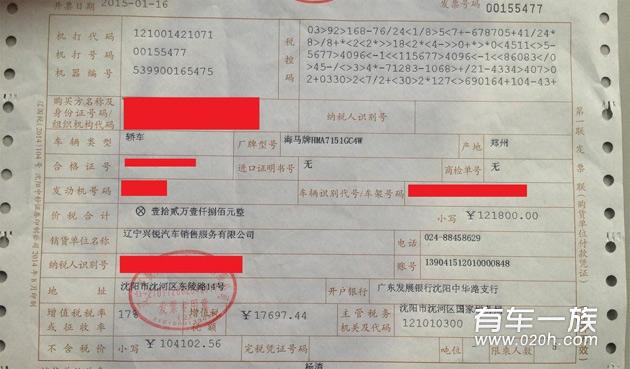 开票日期 2015-01-16
发票号码 00155477
机打代码 121001421071
机打号码 00155477
机器编号 539900165475
税控码
03>92>168-76/24<1/8>5<7+-678705+41/24*
8>/8+*<2<2*>>18<2*<4<0><>+*0<4511<>5-
5677>4096<-1<<115677>4096<-1<<86083</0
>45-/<>3>4*-71283-1068>+/21-4334>407>0
02+0330>2<7/2+<30>2*127<>690164+104-43+
购买方名称及
身份证号码/
组织机构代码
纳税人识别号
车辆类型 轿车 厂牌型号 海马牌HMA7151GC4W 产地 郑州
合格证号 进口证明书号 无 商检单号 无
发动机号码 车辆识别代号/车架号码
价税合计 ⊗ 壹拾贰万壹仟捌佰元整 小写 ￥121800.00
销货单位名称 辽宁兴锐汽车销售服务有限公司 电话 024-88458629
纳税人识别号 账号 139041512010000848
地址 沈阳市沈河区东陵路14号 开户银行 广东发展银行沈阳中华路支行
增值税税率
或征收率 17% 增值税
税额 ￥17697.44 主管税务
机关及代码 沈阳市沈河区国家
121010300
不含税价 小写 ￥104102.56 完税凭证号码 吨位 限乘人数
发票专用章
第一联 发票联(购货单位付款凭证)
有车一族
www.020h.com